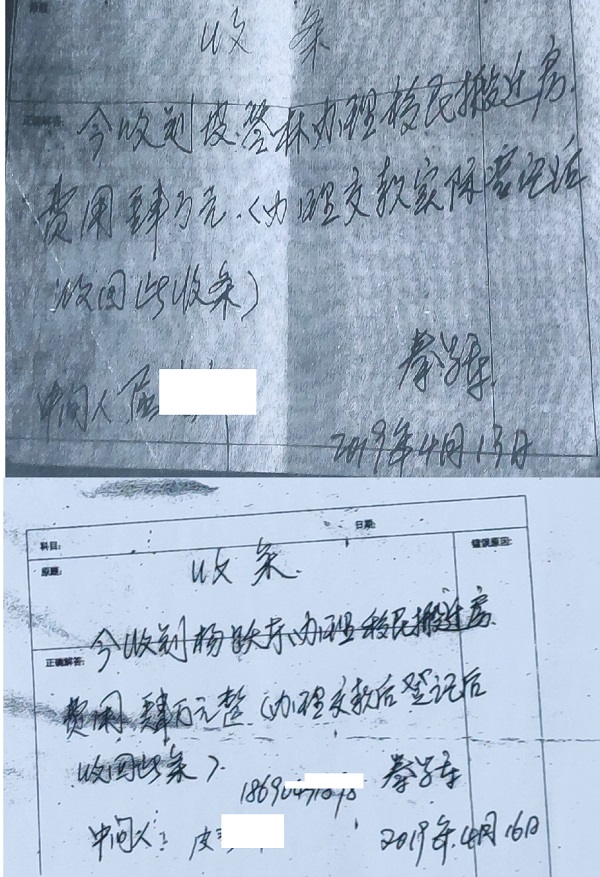 收条
正确解答:
今收到 办理移民搬迁房
费用肆万元.(办理交款实际登记后
收回此收条)
秦学东
中间人
2019年4月13日
科目: 日期:
原题: 错误原因:
收条.
正确解答:
今收到杨 办理移民搬迁房
费用肆万元整(办理交款后登记后
收回此条).
秦学东
中间人: 皮
2019年4月16日